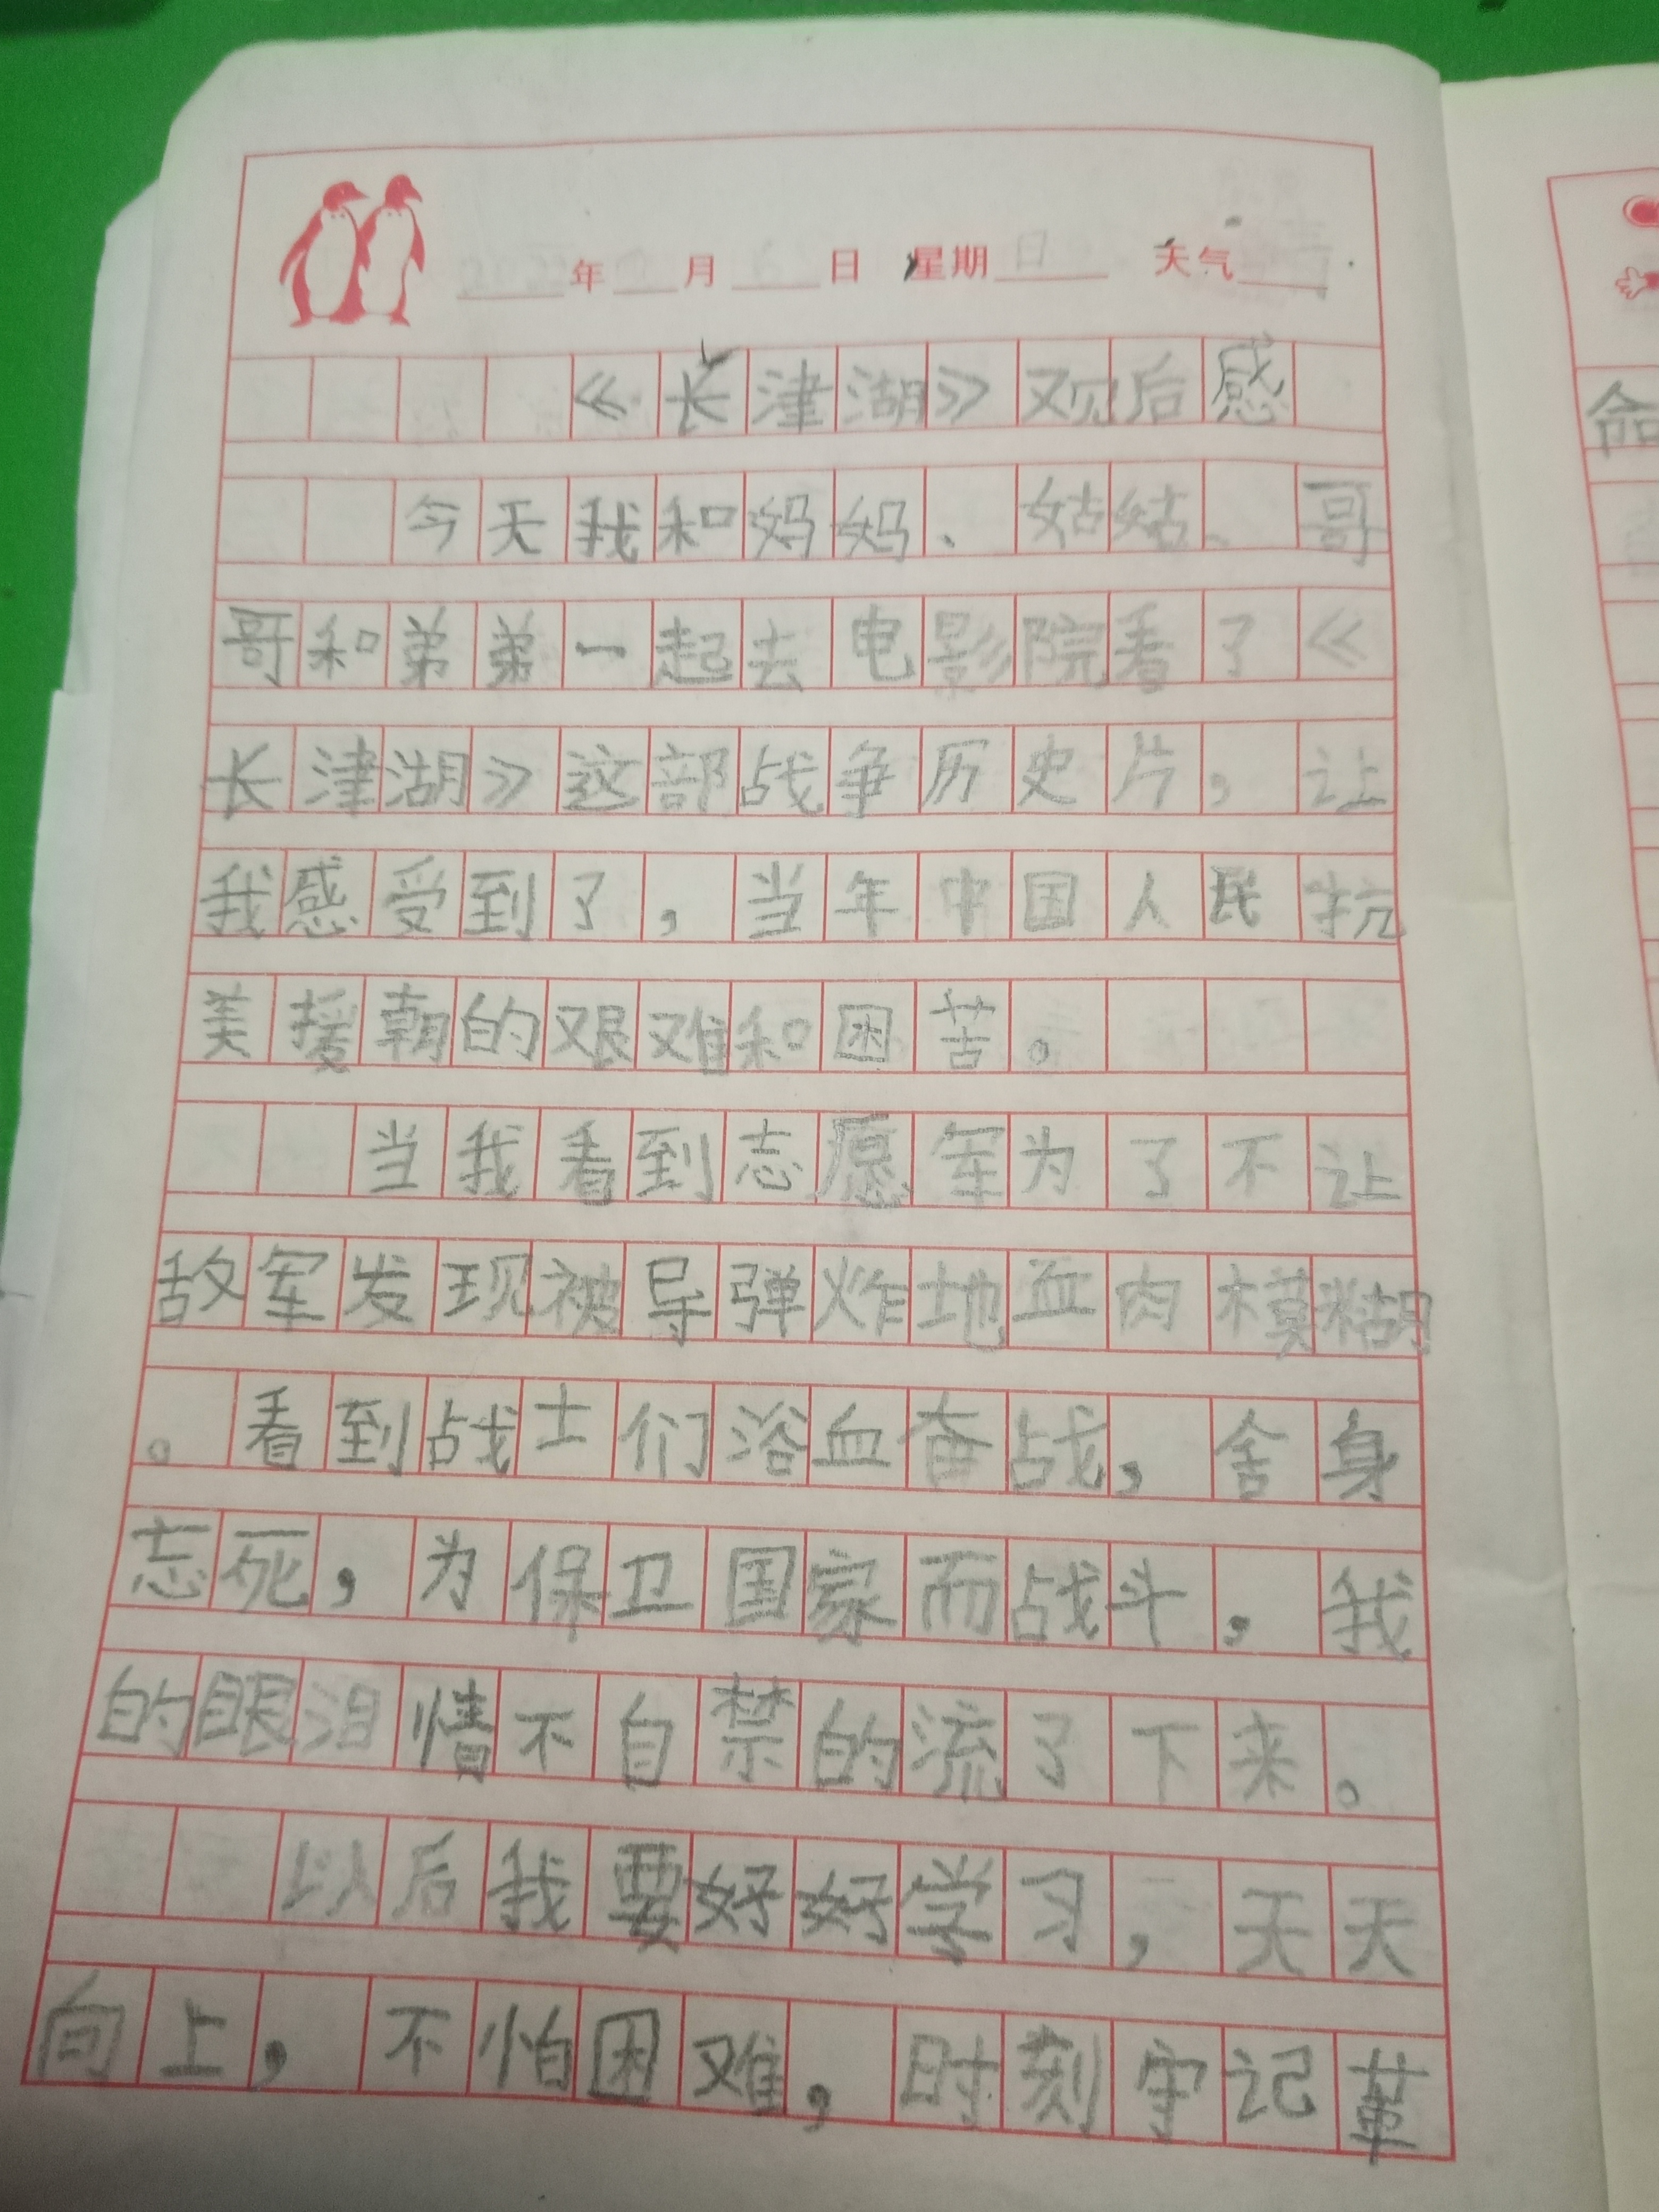 年 月 日 星期 天气
《长津湖》观后感
今天我和妈妈、姑姑、哥
哥和弟弟一起去电影院看了《
长津湖》这部战争历史片，让
我感受到了，当年中国人民抗
美援朝的艰难和困苦。
当我看到志愿军为了不让
敌军发现被导弹炸地血肉模糊
。看到战士们浴血奋战，舍身
忘死，为保卫国家而战斗，我
的眼泪情不自禁的流了下来。
以后我要好好学习，天天
向上，不怕困难，时刻牢记革
命